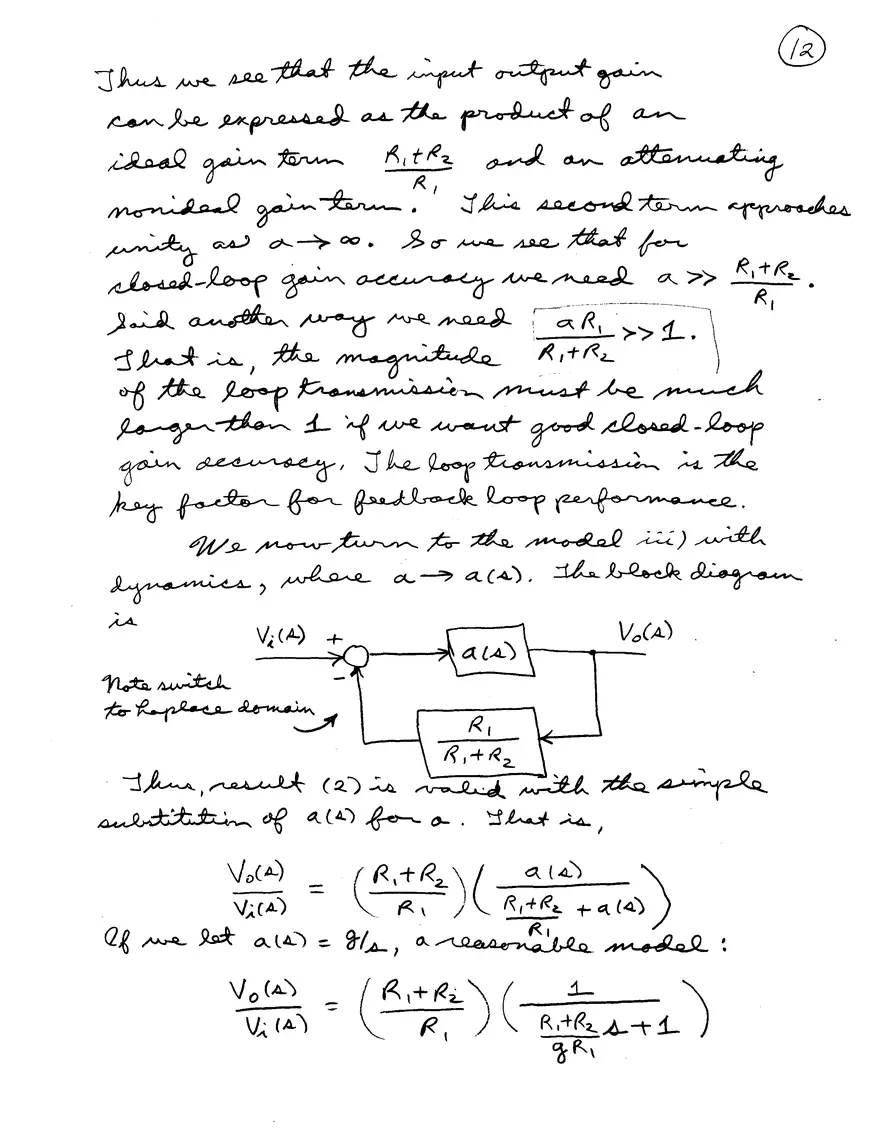 12
Thus we see that the input output gain
can be expressed as the product of an
ideal gain term (R₁+R₂)/R₁ and an attenuating
nonideal gain term. This second term approaches
unity as a → ∞. So we see that for
closed-loop gain accuracy we need a >> (R₁+R₂)/R₁.
Said another way we need aR₁/(R₁+R₂) >> 1.
That is, the magnitude
of the loop transmission must be much
larger than 1 if we want good closed-loop
gain accuracy. The loop transmission is the
key factor for feedback loop performance.
We now turn to the model iii) with
dynamics, where a → a(s). The block diagram
is
Vi(s) + a(s) Vo(s)
-
Note switch
to Laplace domain
R₁/(R₁+R₂)
Thus, result (2) is valid with the simple
substitution of a(s) for a. That is,
Vo(s)/Vi(s) = ((R₁+R₂)/R₁)(a(s)/((R₁+R₂)/R₁ + a(s)))
If we let a(s) = g/s, a reasonable model:
Vo(s)/Vi(s) = ((R₁+R₂)/R₁)(1/((R₁+R₂)/(gR₁) s + 1))